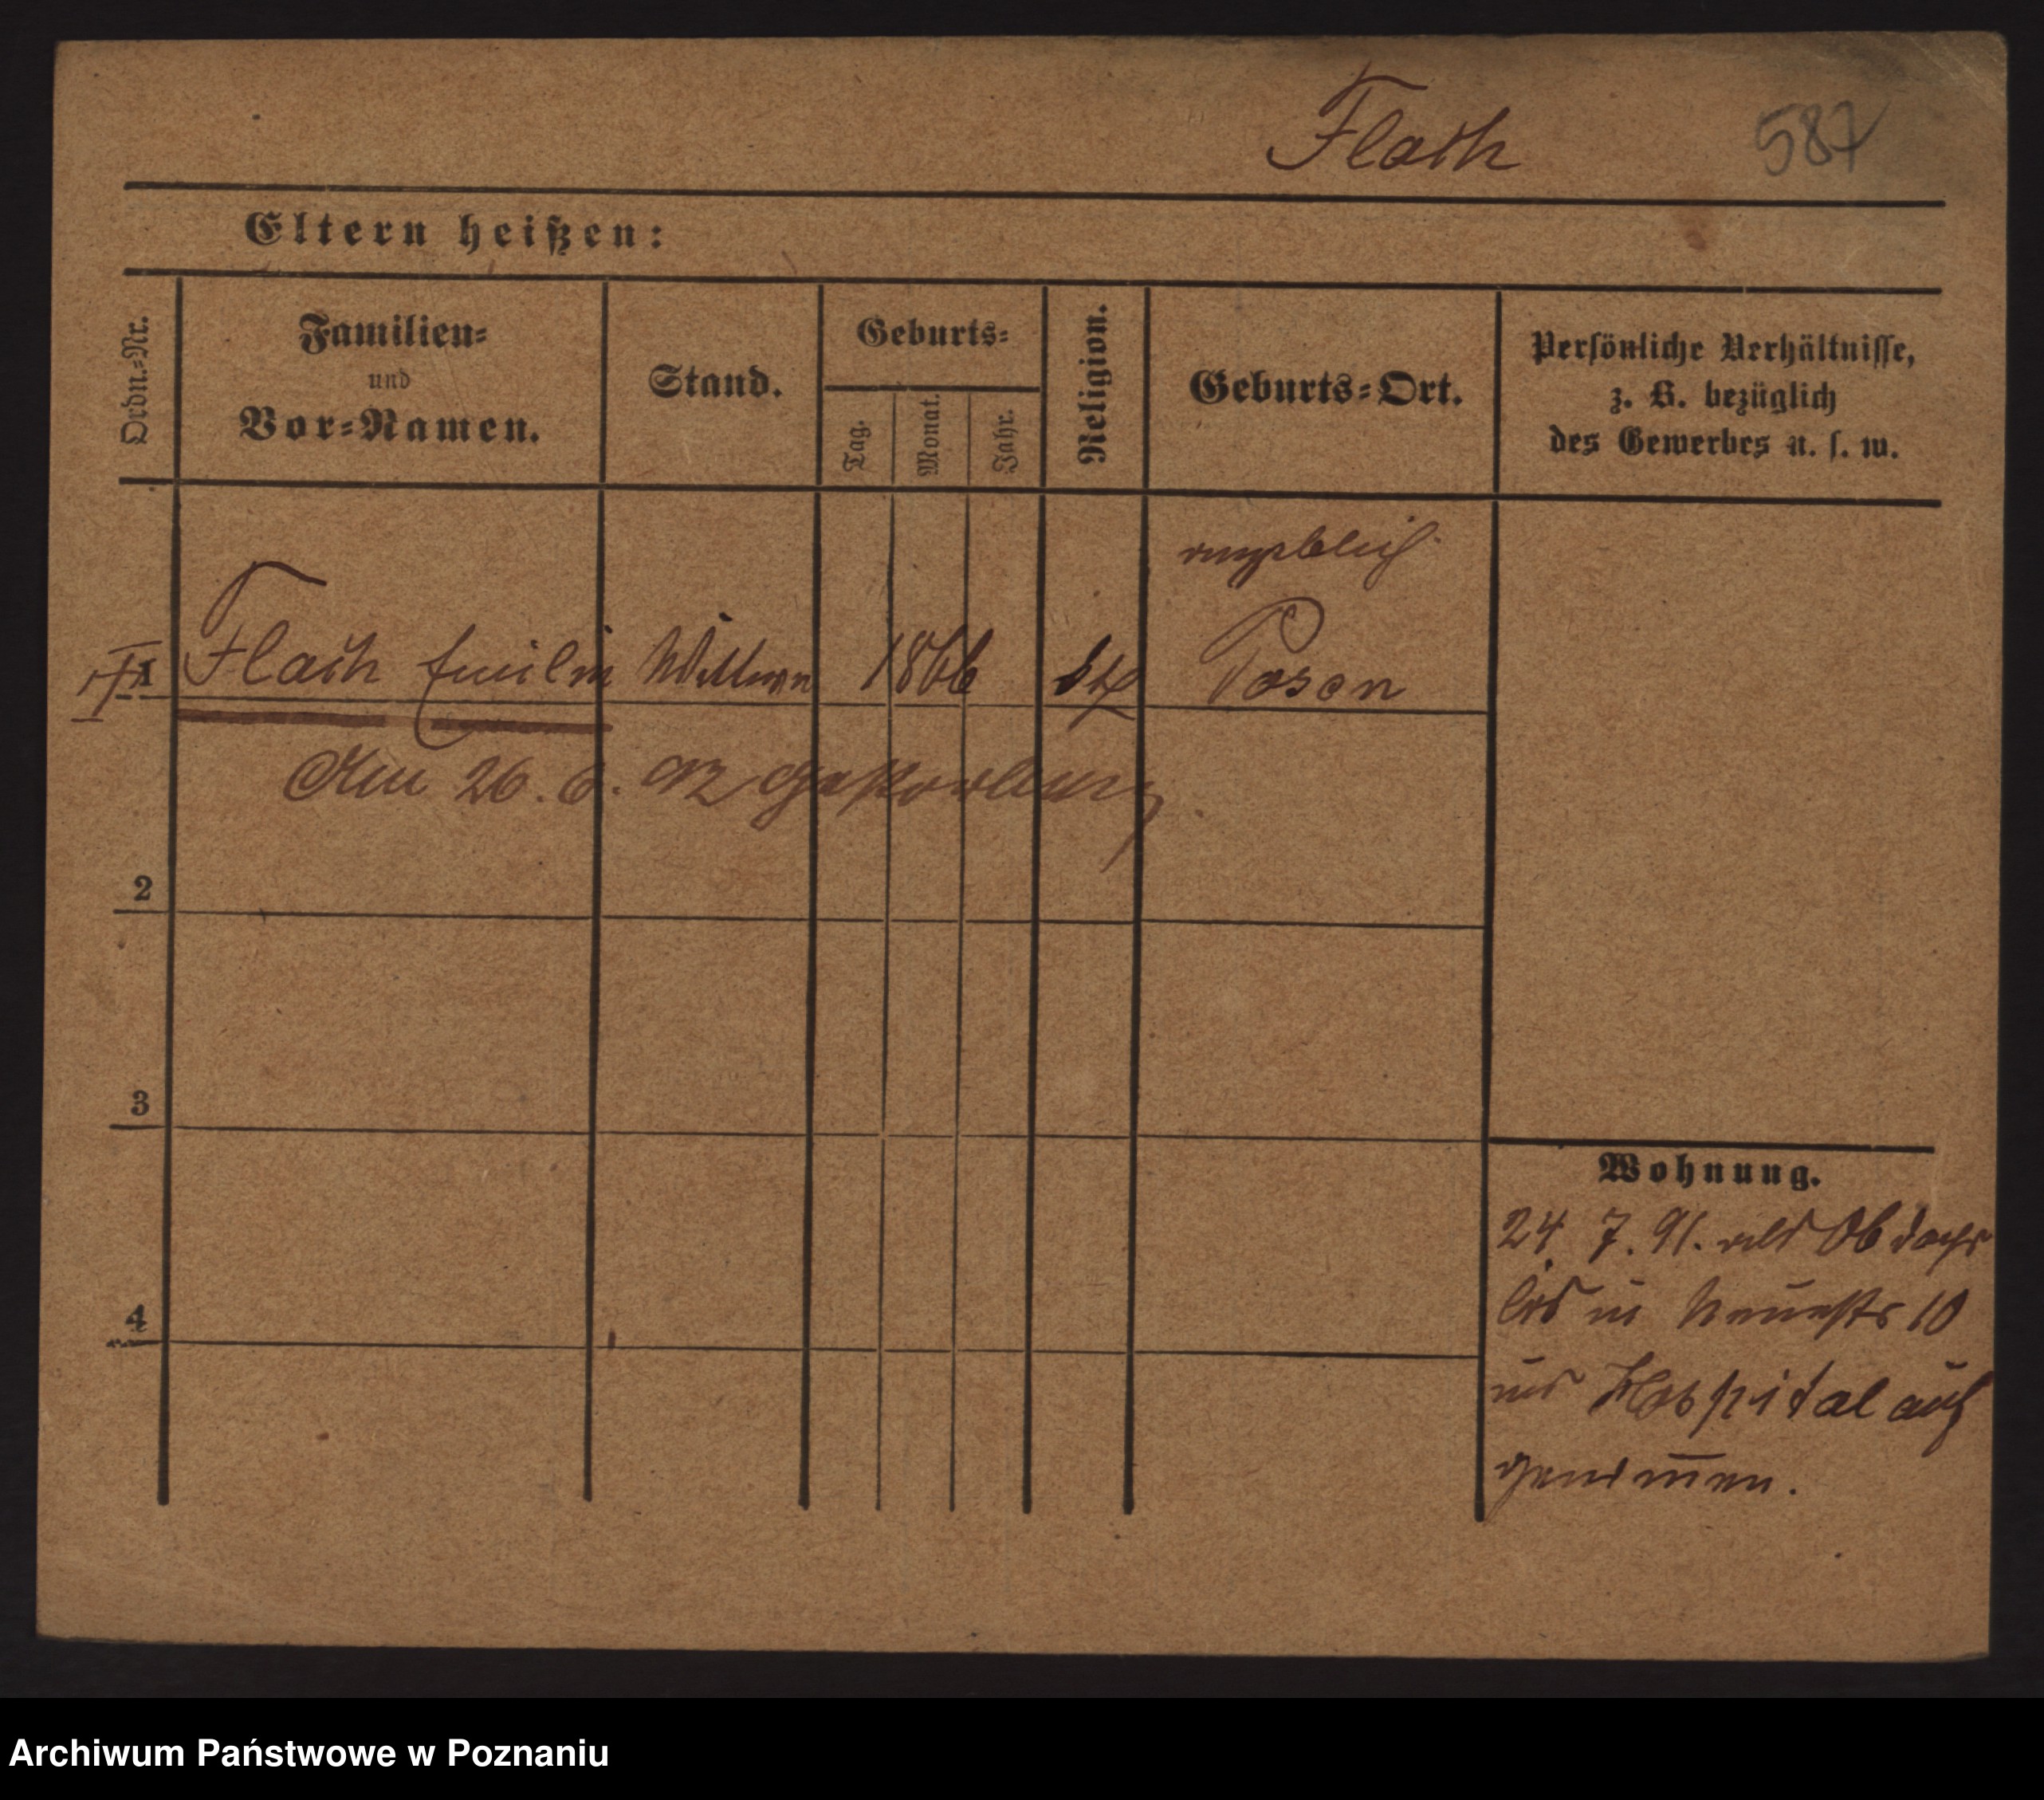 Flach 587
Eltern heißen:
Ordn.-Nr.
Familien-
und
Vor-Namen.
Stand.
Geburts-
Tag.
Monat.
Jahr.
Religion.
Geburts-Ort.
Persönliche Verhältnisse,
z. B. bezüglich
des Gewerbes u. s. w.
angeblich
1 Flach Emilie Wittwe 1866 Posen
Am 26. 6. 92 gestorben
2
3
4
Wohnung.
24 7. 91. als Obdach
los in Neuestr 10
ins Hospital auf
genomen.
Archiwum Państwowe w Poznaniu